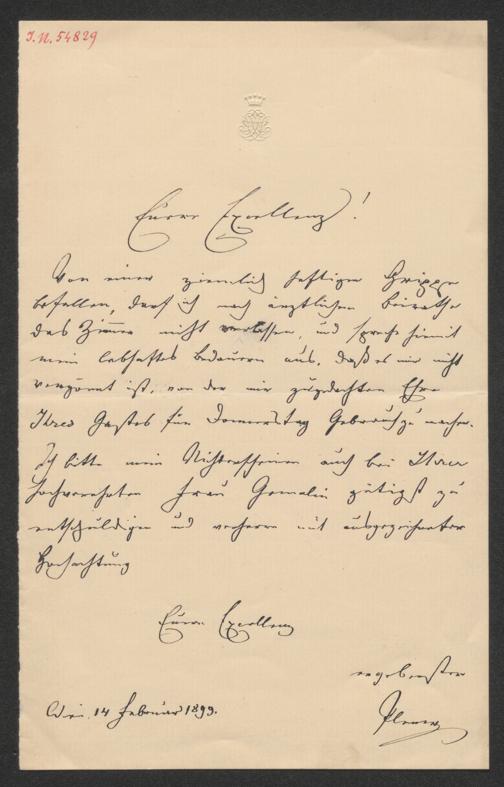 I.N. 54829
Eurer Excellenz!
Von einer ziemlich heftigen Grippe
befallen, darf ich nach ärztlichem beirathe
das Zimmer nicht verlassen, und spreche hiemit
mein lebhaftes bedauern aus, daß es mir nicht
vergönnt ist, von der mir zugedachten Ehre
Ihres Gastes für Donnerstag Gebrauch zu machen.
Ich bitte mein Nichterscheinen auch bei Ihrer
hochverehrten Frau Gemalin gütigst zu
entschuldigen und verharre mit ausgezeichneter
Hochachtung
Eurer Excellenz
ergebenster
Plener
Wien, 14 Februar 1899.